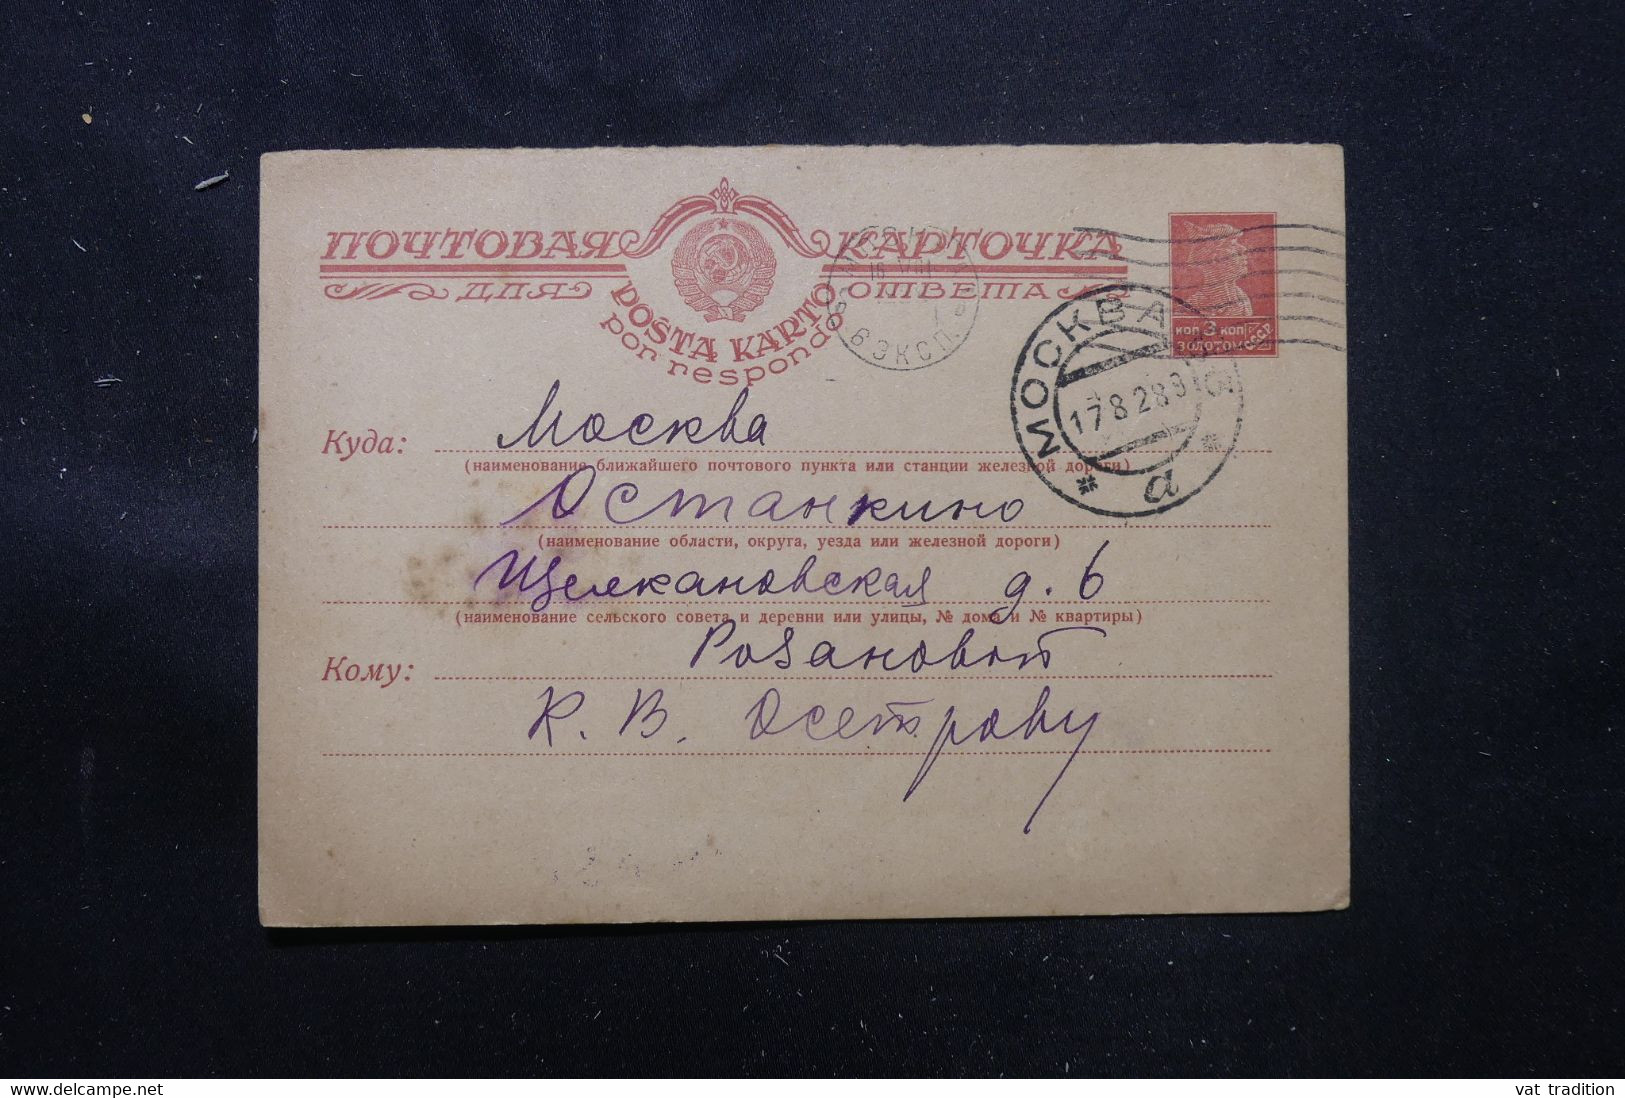 ПОЧТОВАЯ КАРТОЧКА
ДЛЯ ОТВЕТА
POŜTA KARTO
por respondo
КОП 3 КОП
ЗОЛОТОМ
СССР
МОСКВА
17 8 28
а
ЭКСП.
Куда: Москва
(наименование ближайшего почтового пункта или станции железной дороги)
Останкино
(наименование области, округа, уезда или железной дороги)
Щелкановская д. 6
(наименование сельского совета и деревни или улицы, № дома и № квартиры)
Розановой
Кому:
К. В. Осетрову
Delcampe.net
vat tradition